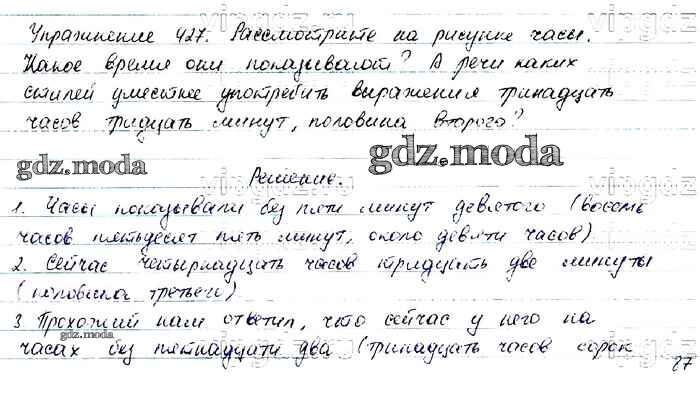 Упражнение 427. Рассмотрите на рисунке часы.
Какое время они показывают? В речи каких
стилей уместнее употребить выражения тринадцать
часов тридцать минут, половина второго?
gdz.moda
gdz.moda
Решение.
1. Часы показывали без пяти минут девятого (восемь
часов пятьдесят пять минут, около девяти часов)
2. Сейчас четырнадцать часов тридцать две минуты
(половина третьего)
3 Прохожий нам ответил, что сейчас у него на
gdz.moda
часах без пятнадцати два (тринадцать часов сорок
27